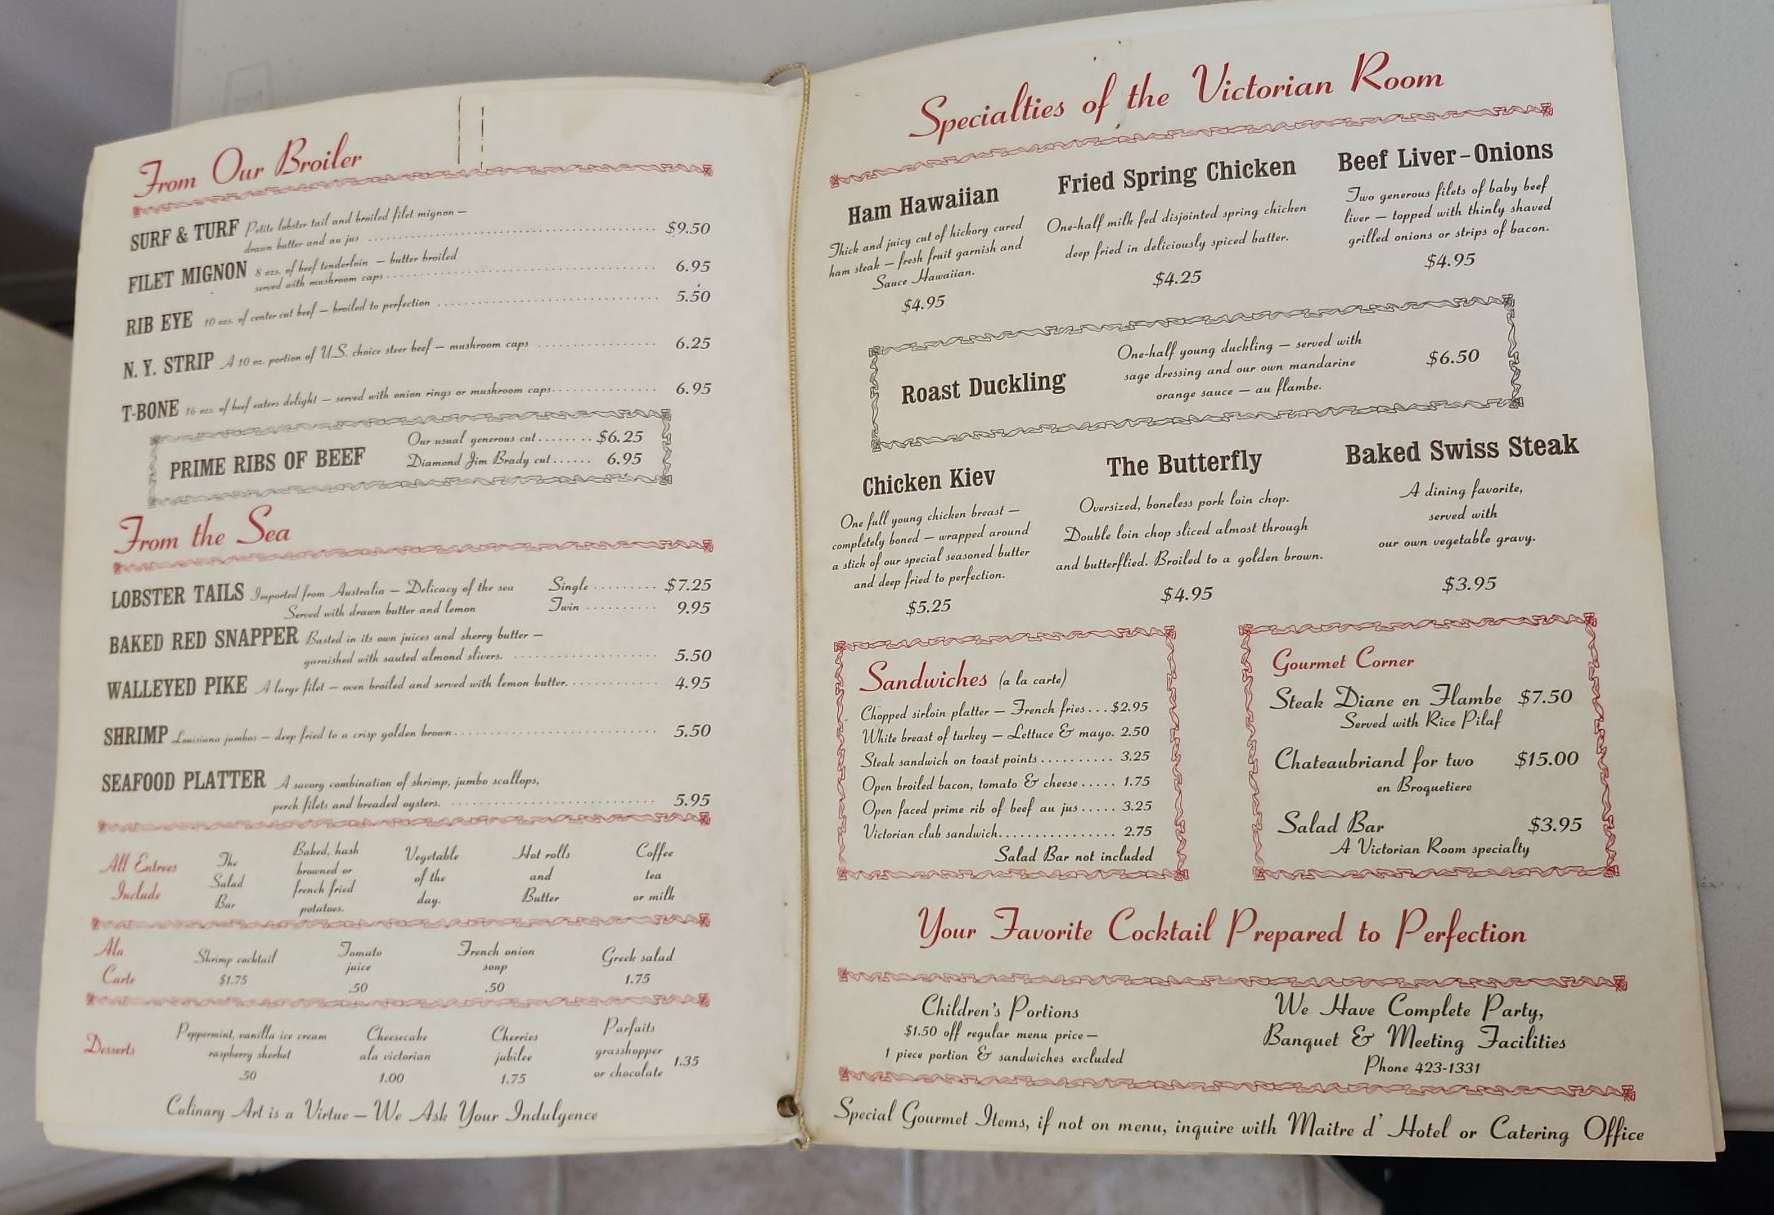 From Our Broiler
SURF & TURF Petite lobster tail and broiled filet mignon —
drawn butter and au jus $9.50
FILET MIGNON 8 ozs. of beef tenderloin — butter broiled
served with mushroom caps 6.95
RIB EYE 10 ozs. of center cut beef — broiled to perfection 5.50
N. Y. STRIP A 10 oz. portion of U.S. choice steer beef — mushroom caps 6.25
T-BONE 16 ozs. of beef eaters delight — served with onion rings or mushroom caps 6.95
PRIME RIBS OF BEEF
Our usual generous cut $6.25
Diamond Jim Brady cut 6.95
From the Sea
LOBSTER TAILS Imported from Australia — Delicacy of the sea Single $7.25
Served with drawn butter and lemon Twin 9.95
BAKED RED SNAPPER Basted in its own juices and sherry butter —
garnished with sauted almond slivers. 5.50
WALLEYED PIKE A large filet — oven broiled and served with lemon butter. 4.95
SHRIMP Louisiana jumbos — deep fried to a crisp golden brown 5.50
SEAFOOD PLATTER A savory combination of shrimp, jumbo scallops,
perch filets and breaded oysters. 5.95
All Entrees
Include
The
Salad
Bar
Baked, hash
browned or
french fried
potatoes.
Vegetable
of the
day.
Hot rolls
and
Butter
Coffee
tea
or milk
Ala
Carte
Shrimp cocktail
$1.75
Tomato
juice
.50
French onion
soup
.50
Greek salad
1.75
Desserts
Peppermint, vanilla ice cream
raspberry sherbet
.50
Cheesecake
ala victorian
1.00
Cherries
jubilee
1.75
Parfaits
grasshopper
or chocolate
1.35
Culinary Art is a Virtue — We Ask Your Indulgence
Specialties of the Victorian Room
Ham Hawaiian
Thick and juicy cut of hickory cured
ham steak — fresh fruit garnish and
Sauce Hawaiian.
$4.95
Fried Spring Chicken
One-half milk fed disjointed spring chicken
deep fried in deliciously spiced batter.
$4.25
Beef Liver - Onions
Two generous filets of baby beef
liver — topped with thinly shaved
grilled onions or strips of bacon.
$4.95
Roast Duckling
One-half young duckling — served with
sage dressing and our own mandarine
orange sauce — au flambe.
$6.50
Chicken Kiev
One full young chicken breast —
completely boned — wrapped around
a stick of our special seasoned butter
and deep fried to perfection.
$5.25
The Butterfly
Oversized, boneless pork loin chop.
Double loin chop sliced almost through
and butterflied. Broiled to a golden brown.
$4.95
Baked Swiss Steak
A dining favorite,
served with
our own vegetable gravy.
$3.95
Sandwiches (a la carte)
Chopped sirloin platter — French fries . . . $2.95
White breast of turkey — Lettuce & mayo. 2.50
Steak sandwich on toast points 3.25
Open broiled bacon, tomato & cheese 1.75
Open faced prime rib of beef au jus 3.25
Victorian club sandwich 2.75
Salad Bar not included
Gourmet Corner
Steak Diane en Flambe $7.50
Served with Rice Pilaf
Chateaubriand for two $15.00
en Broquetiere
Salad Bar $3.95
A Victorian Room specialty
Your Favorite Cocktail Prepared to Perfection
Children's Portions
$1.50 off regular menu price —
1 piece portion & sandwiches excluded
We Have Complete Party,
Banquet & Meeting Facilities
Phone 423-1331
Special Gourmet Items, if not on menu, inquire with Maitre d' Hotel or Catering Office